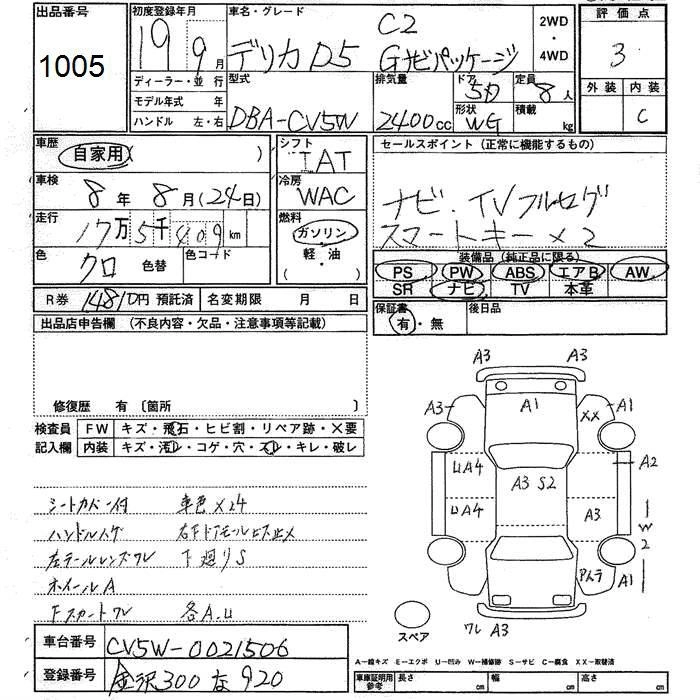 出品番号
1005
初度登録年月
19 9月
車名・グレード
デリカ D5
C2
Gナビパッケージ
2WD
・
4WD
評価点
3
外装
内装
C
ディーラー・並行
モデル年式 年
ハンドル 左・右
型式
DBA-CV5W
排気量
2400cc
ドア
5D
形状
WG
定員
8人
積載
kg
車歴
自家用( )
車検
8年 8月(24日)
走行
17万5千409km
色
クロ
色替
色コード
シフト
IAT
冷房
WAC
燃料
ガソリン
軽・油
( ・ )
セールスポイント(正常に機能するもの)
ナビ.TVフルセグ
スマートキー×2
装備品(純正品に限る)
PS PW ABS エアB AW
SR ナビ TV 本革
R券 14810円 預託済
名変期限 月 日
保証書
有・無
後日品
出品店申告欄 (不良内容・欠品・注意事項等記載)
修復歴 有 〔箇所
検査員
記入欄
FW キズ・飛石・ヒビ割・リペア跡・×要
内装 キズ・汚レ・コゲ・穴・スレ・キレ・破レ
シートカバー付 車色×24
ハンドルハゲ 右Fドアモールビス止メ
左テールレンズワレ 下廻りS
ホイールA
Fスカートワレ 各A.U
車台番号
CV5W-0021506
登録番号
金沢300 な 920
A3 A3
A3 A1 XX A1
UA4 A3 S2 A2
UA4 A3 W2
アレラ A1
スペア
ワレ A3
A−線キズ E−エクボ U−凹み W−補修跡 S−サビ C−腐食 XX−取替済
車庫証明用
参考
長さ cm
幅 cm
高さ cm